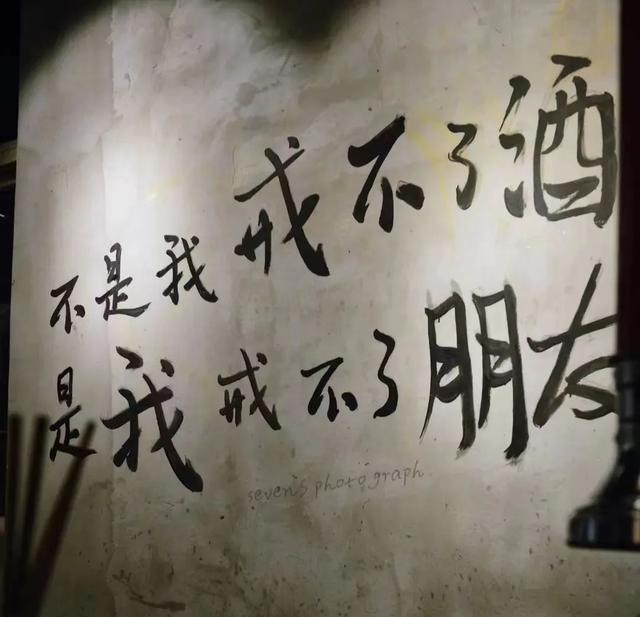 不是我戒不了酒
是我戒不了朋友
seven's photograph